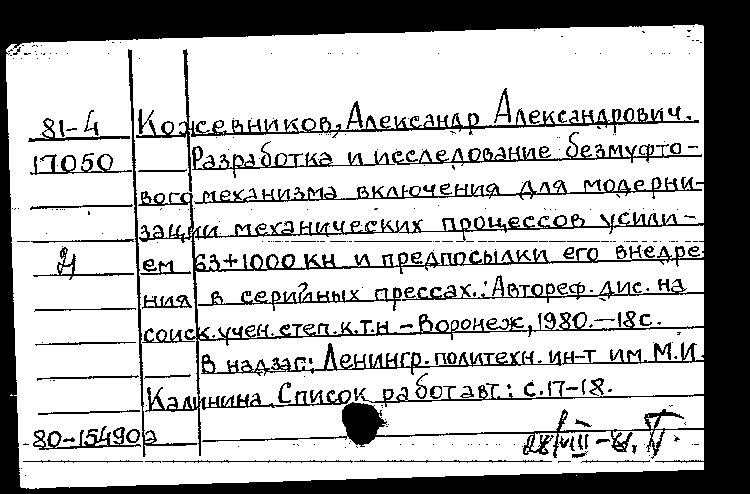 81-4 Кожевников, Александр Александрович.
17050 Разработка и исследование безмуфто-
вого механизма включения для модерни-
зации механических процессов усили-
ем 63+1000 кн и предпосылки его внедре
ния в серийных прессах.: Автореф. дис. на
соиск. учен. степ. к.т.н. - Воронеж, 1980. - 18с.
В надзаг: Ленингр. политехн. ин-т им. М.И.
Калинина. Список работ авт.: с.17-18.
80-15490а 28/VIII-81.